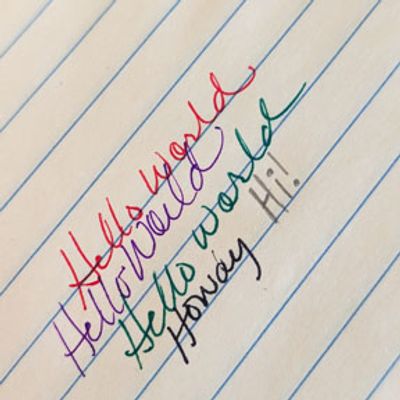 Hello World
Hello World
Hello World
Howdy Hi!